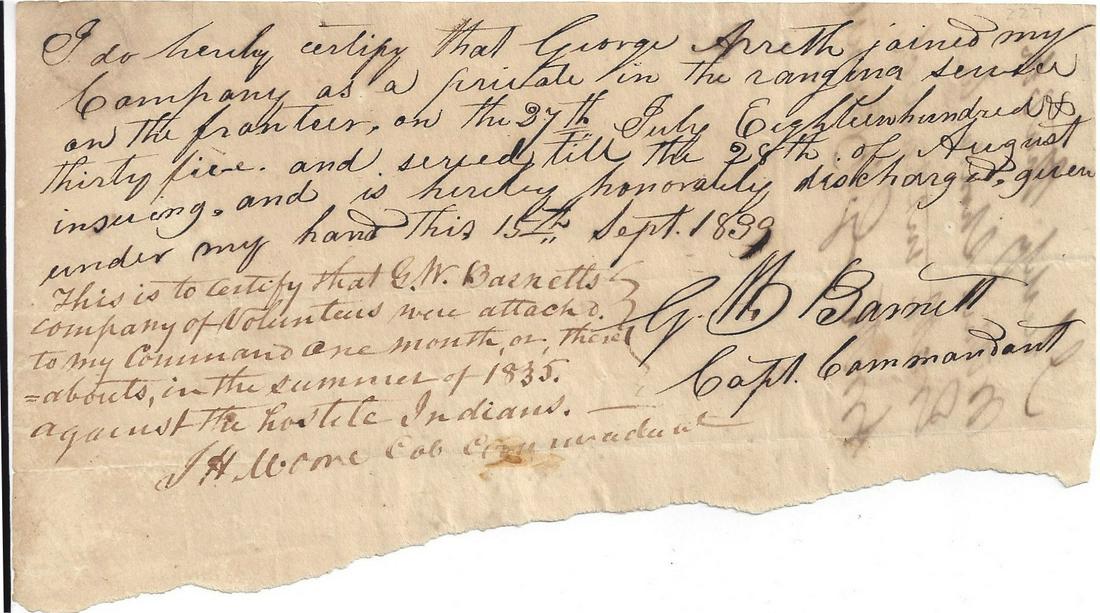 I do hereby certify that George Arreth joined my
Company as a private in the ranging servise
on the fronteer, on the 27th July Eighteenhundred &
thirty five. and served till the 28th of August
insueing, and is hereby honorably discharged, given
under my hand this 15th Sept. 1839
G. W. Barnett
Capt. Commandant
This is to certify that G. W. Barnetts
company of Volunteers were attached.
to my Command one month, or, there
=abouts, in the summer of 1835.
against the hostile Indians.
J H Moore Col Commadant